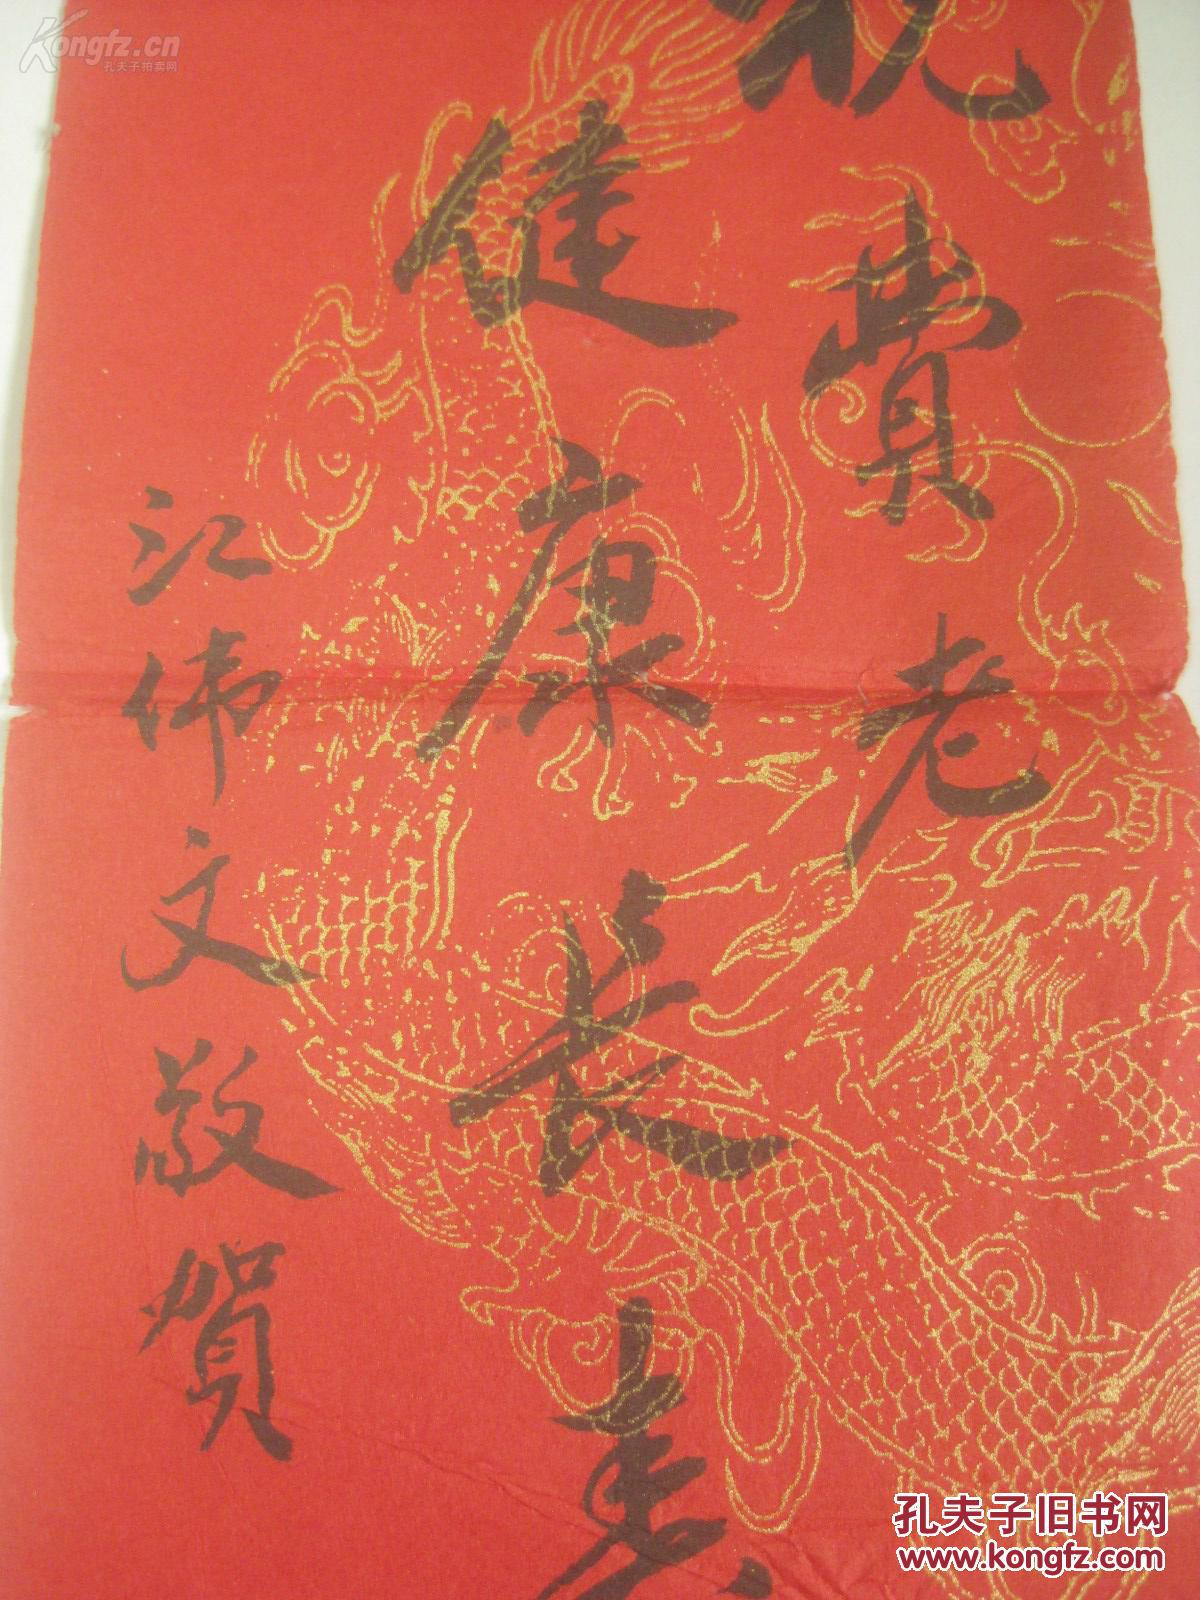 祝費老
健康長壽
江伟文敬賀
Kongfz.cn
孔夫子拍卖网
孔夫子旧书网
www.kongfz.com